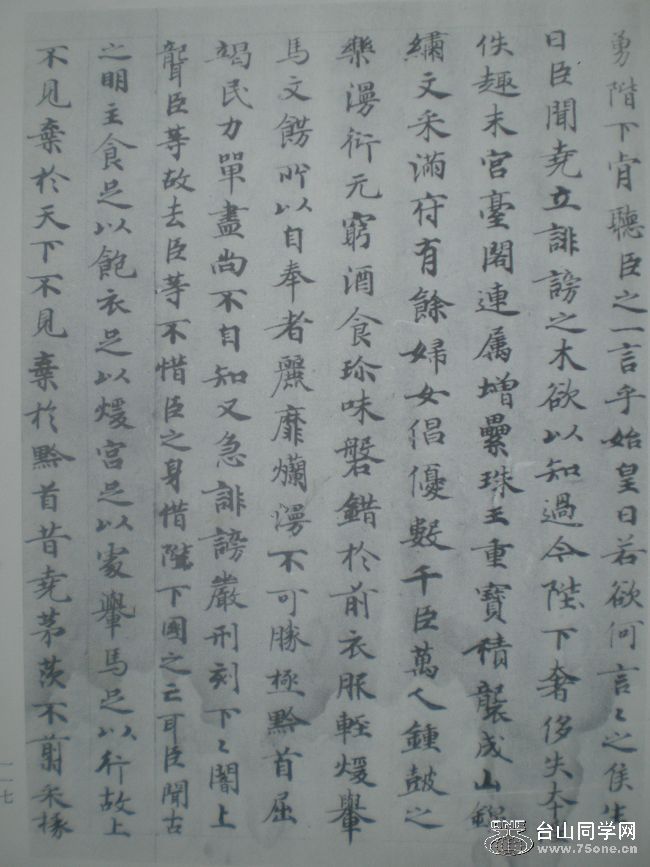 勇階下肯聽臣之一言乎始皇曰若欲何言〻之侯生
曰臣聞堯立誹謗之木欲以知過今陛下奢侈失本
佚趣末宮臺閣連属增壘珠玉重寶積襲成山錦
繡文采滿府有餘婦女倡優數千臣萬人鍾鼓之
樂漫衍无窮酒食珎味磐錯於前衣服輕煖轝
馬文餝所以自奉者麗靡爛漫不可勝極黔首屈
竭民力單盡尚不自知又急誹謗嚴刑刻下〻闇上
聾臣等故去臣等不惜臣之身惜陛下國之亡耳臣聞古
之明主食足以飽衣足以煖宮足以處轝馬足以行故上
不見棄於天下不見棄於黔首昔堯茅茨不剪采椽
一一七
台山同学网
www.75one.com